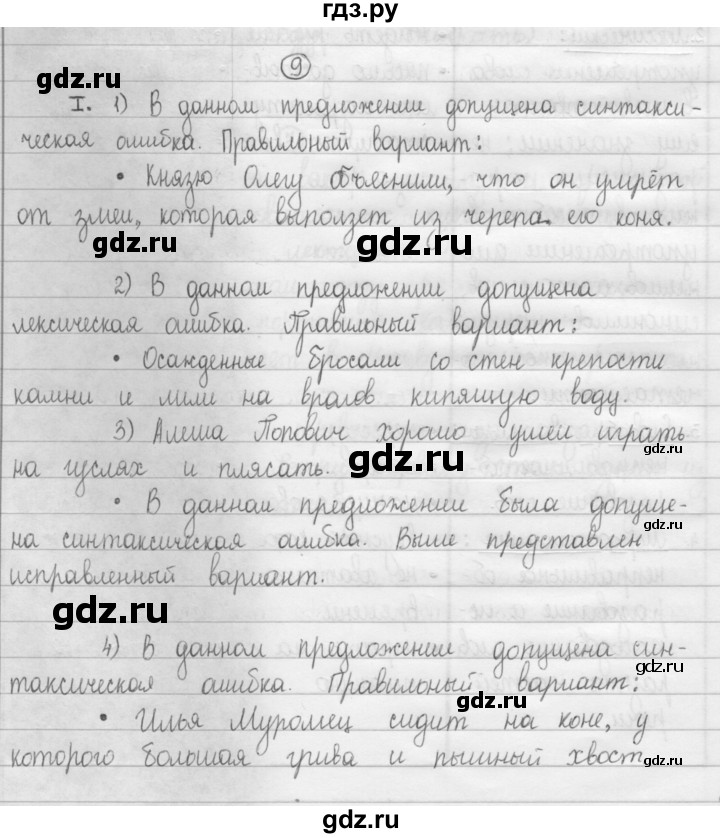 гдз.ру
9
gdz.ru gdz.ru
I. 1) В данном предложении допущена синтакси-
ческая ошибка. Правильный вариант:
gdz.ru
• Князю Олегу объяснили, что он умрёт
от змеи, которая выползет из черепа его коня.
gdz.ru gdz.ru
2) В данном предложении допущена
лексическая ошибка. Правильный вариант:
gdz.ru
• Осажденные бросали со стен крепости
камни и лили на врагов кипящую воду.
3) Алеша Попович хорошо умел играть
gdz.ru
на гуслях и плясать.
gdz.ru
• В данном предложении была допуще-
gdz.ru
на синтаксическая ошибка. Выше представлен
исправленный вариант.
gdz.ru
4) В данном предложении допущена син-
gdz.ru
таксическая ошибка. Правильный вариант:
gdz.ru
• Илья Муромец сидит на коне, у
gdz.ru
которого большая грива и пышный хвост
gdz.ru
gdz.ru